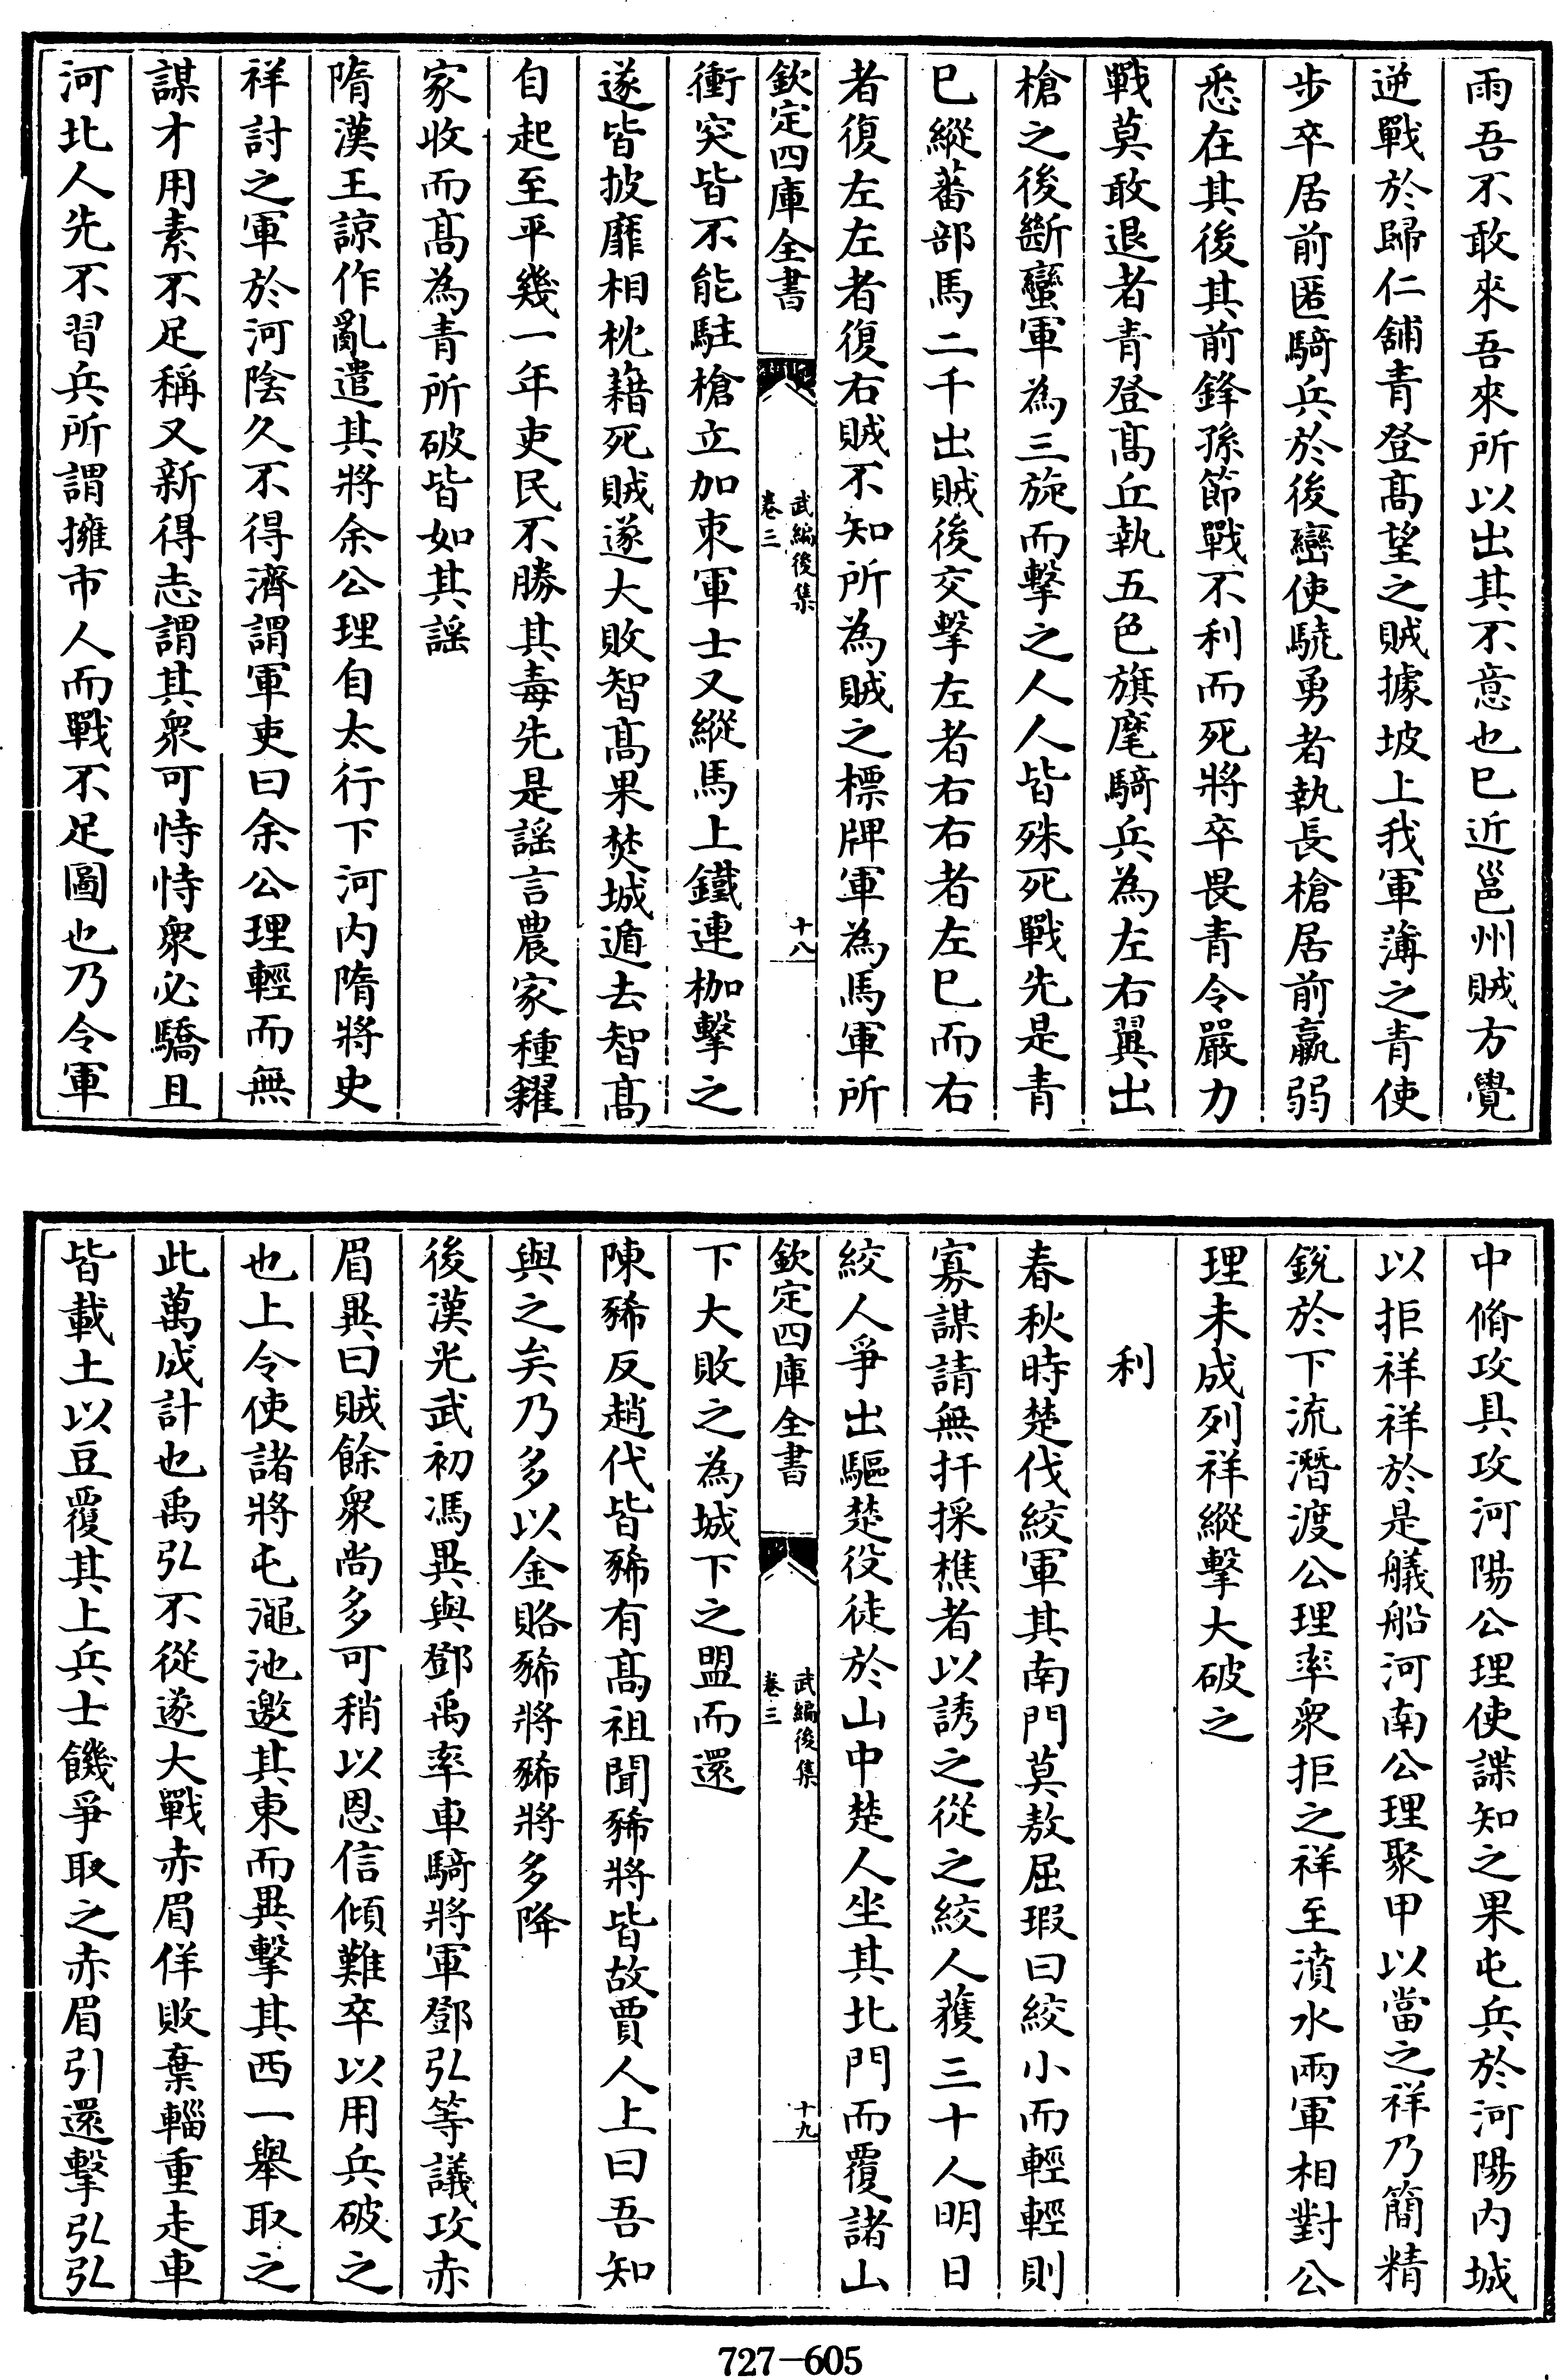 雨吾不敢來吾來所以出其不意也巳近邕州賊方覺
逆戰於歸仁舖青登髙望之賊據坡上我軍薄之青使
步卒居前匿騎兵於後蠻使驍勇者執長槍居前羸弱
悉在其後其前鋒孫節戰不利而死將卒畏青令嚴力
戰莫敢退者青登髙丘執五色旗麾騎兵為左右翼出
槍之後斷蠻軍為三旋而擊之人人皆殊死戰先是青
巳縱蕃部馬二千出賊後交擊左者右右者左巳而右
者復左左者復右賊不知所為賊之標牌軍為馬軍所
欽定四庫全書
武編後集
卷三
十八
衝突皆不能駐槍立加束軍士又縱馬上鐵連枷擊之
遂皆披靡相枕藉死賊遂大敗智髙果焚城遁去智髙
自起至平幾一年吏民不勝其毒先是謡言農家種糴
家收而髙為青所破皆如其謡
隋漢王諒作亂遣其將余公理自太行下河内隋將史
祥討之軍於河陰久不得濟謂軍吏曰余公理輕而無
謀才用素不足稱又新得志謂其衆可恃恃衆必驕且
河北人先不習兵所謂擁市人而戰不足圖也乃令軍
中脩攻具攻河陽公理使諜知之果屯兵於河陽内城
以拒祥祥於是艤船河南公理聚甲以當之祥乃簡精
鋭於下流潛渡公理率衆拒之祥至濆水兩軍相對公
理未成列祥縱擊大破之
利
春秋時楚伐絞軍其南門莫敖屈瑕曰絞小而輕輕則
寡謀請無扞採樵者以誘之從之絞人獲三十人明日
絞人爭出驅楚役徒於山中楚人坐其北門而覆諸山
欽定四庫全書
武編後集
卷三
十九
下大敗之為城下之盟而還
陳豨反趙代皆豨有髙祖聞豨將皆故賈人上曰吾知
與之矣乃多以金賂豨將豨將多降
後漢光武初馮異與鄧禹率車騎將軍鄧弘等議攻赤
眉異曰賊餘衆尚多可稍以恩信傾難卒以用兵破之
也上令使諸將屯澠池邀其東而異擊其西一舉取之
此萬成計也禹弘不從遂大戰赤眉佯敗棄輜重走車
皆載土以豆覆其上兵士饑爭取之赤眉引還擊弘弘
727—605